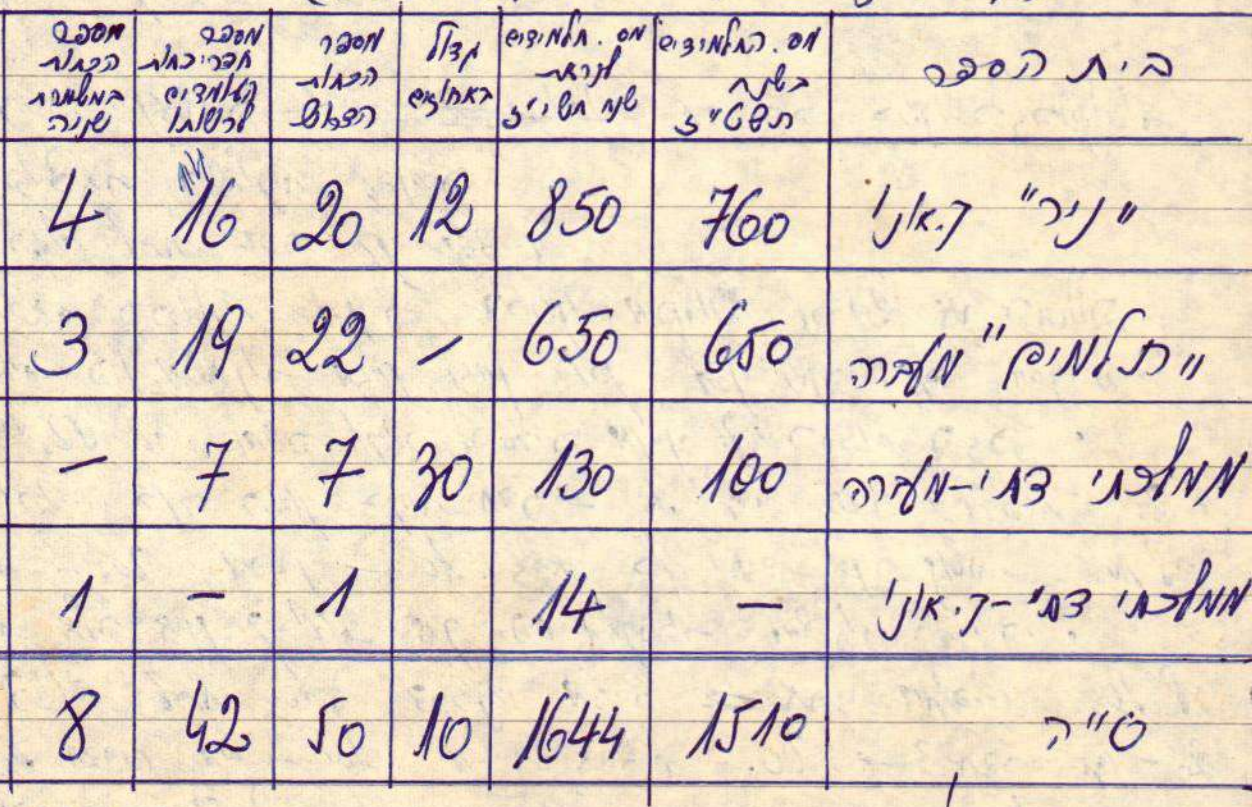 בית הספר
מס. התלמידים
בשנת
תשט"ז
מס. תלמידים
לקראת
שנת תשי"ז
גדול
באחוזים
מספר
הכתות
הדרוש
מספר
חדרי כתות
העומדים
לרשותו
מספר
הכתות
במשמרת
שניה
"ניר" ק.אונו 760 850 12 20 16 4
"תלמים" מעברה 650 650 - 22 19 3
ממלכתי דתי-מעברה 100 130 30 7 7 -
ממלכתי דתי-ק.אונו - 14 1 - 1
ס"ה 1510 1644 10 50 42 8